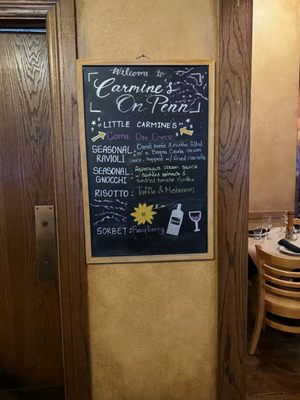 Welcome to
Carmine's
On Penn
"LITTLE CARMINE'S"
COME ON OVER
SEASONAL RAVIOLI
Carrot puree & ricotta filled
w/ a Bagna Cauda cream
sauce, topped w/ fried carrots
SEASONAL GNOCCHI
Asparagus cream sauce
w/ sauteed spinach &
tomato ricotta
RISOTTO: Truffle & Mushroom
SORBET: Raspberry